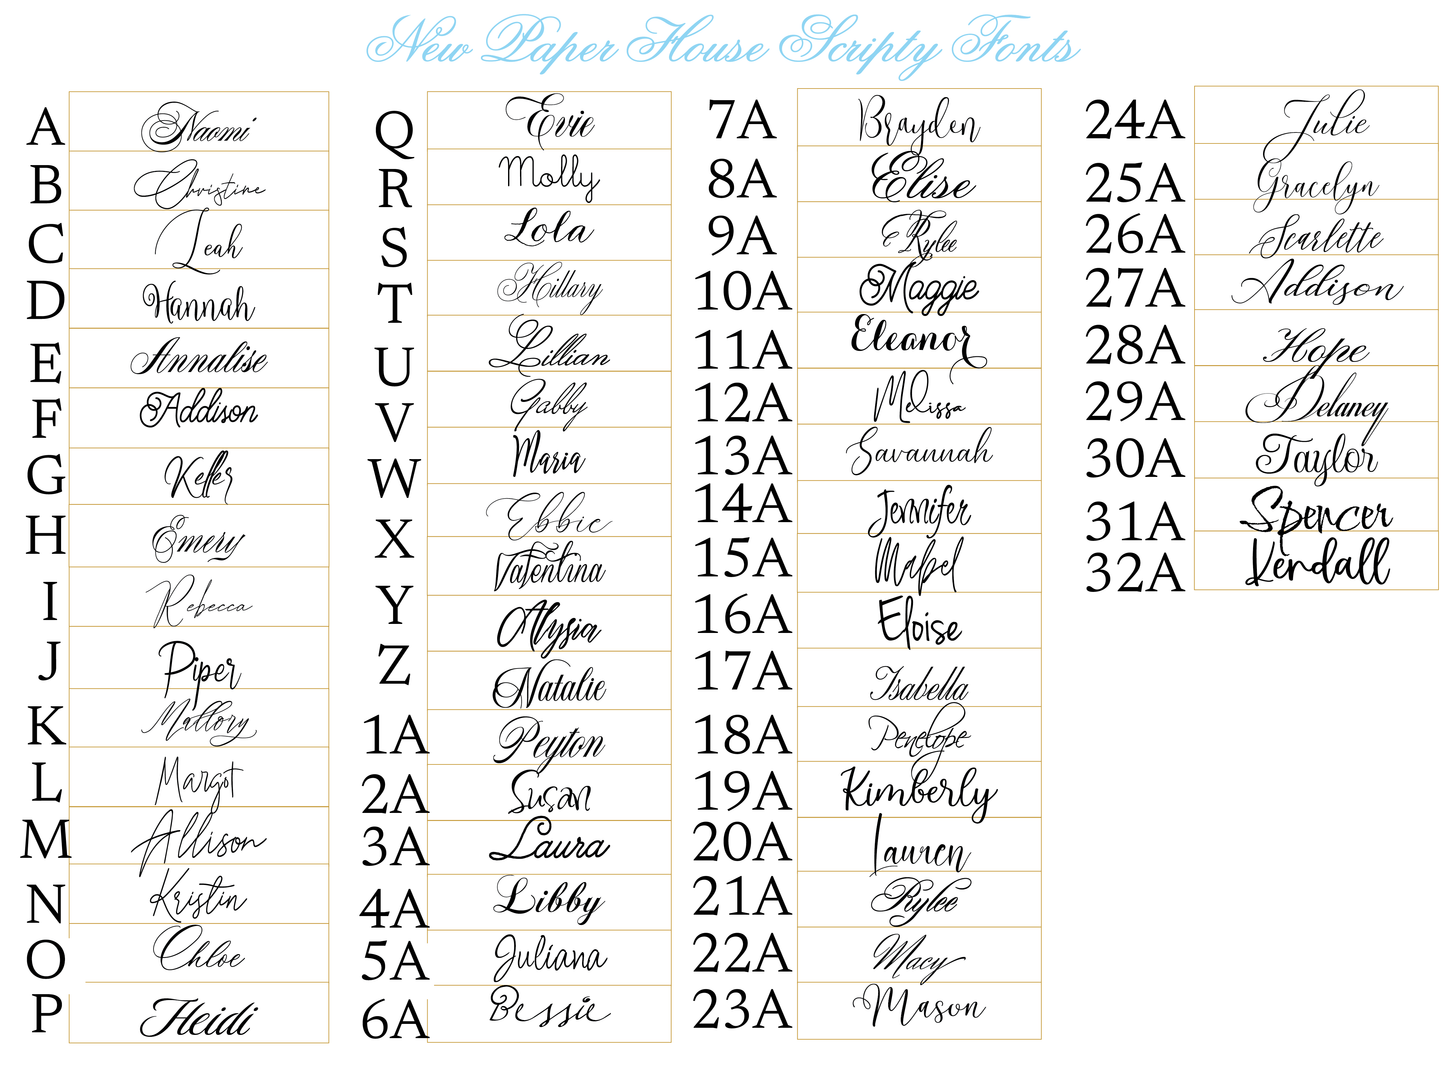 New Paper House Scripty Fonts
A Naomi
B Christine
C Leah
D Hannah
E Annalise
F Addison
G Keller
H Emery
I Rebecca
J Piper
K Mallory
L Margot
M Allison
N Kristin
O Chloe
P Heidi
Q Evie
R Molly
S Lola
T Hillary
U Lillian
V Gabby
W Maria
X Ebbie
Y Valentina
Z Alysia
Natalie
1A Peyton
2A Susan
3A Laura
4A Libby
5A Juliana
6A Bessie
7A Brayden
8A Elise
9A Rylee
10A Maggie
11A Eleanor
12A Melissa
13A Savannah
14A Jennifer
15A Mabel
16A Eloise
17A Isabella
18A Penelope
19A Kimberly
20A Lauren
21A Rylee
22A Macy
23A Mason
24A Julie
25A Gracelyn
26A Scarlette
27A Addison
28A Hope
29A Delaney
30A Taylor
31A Spencer
32A Kendall